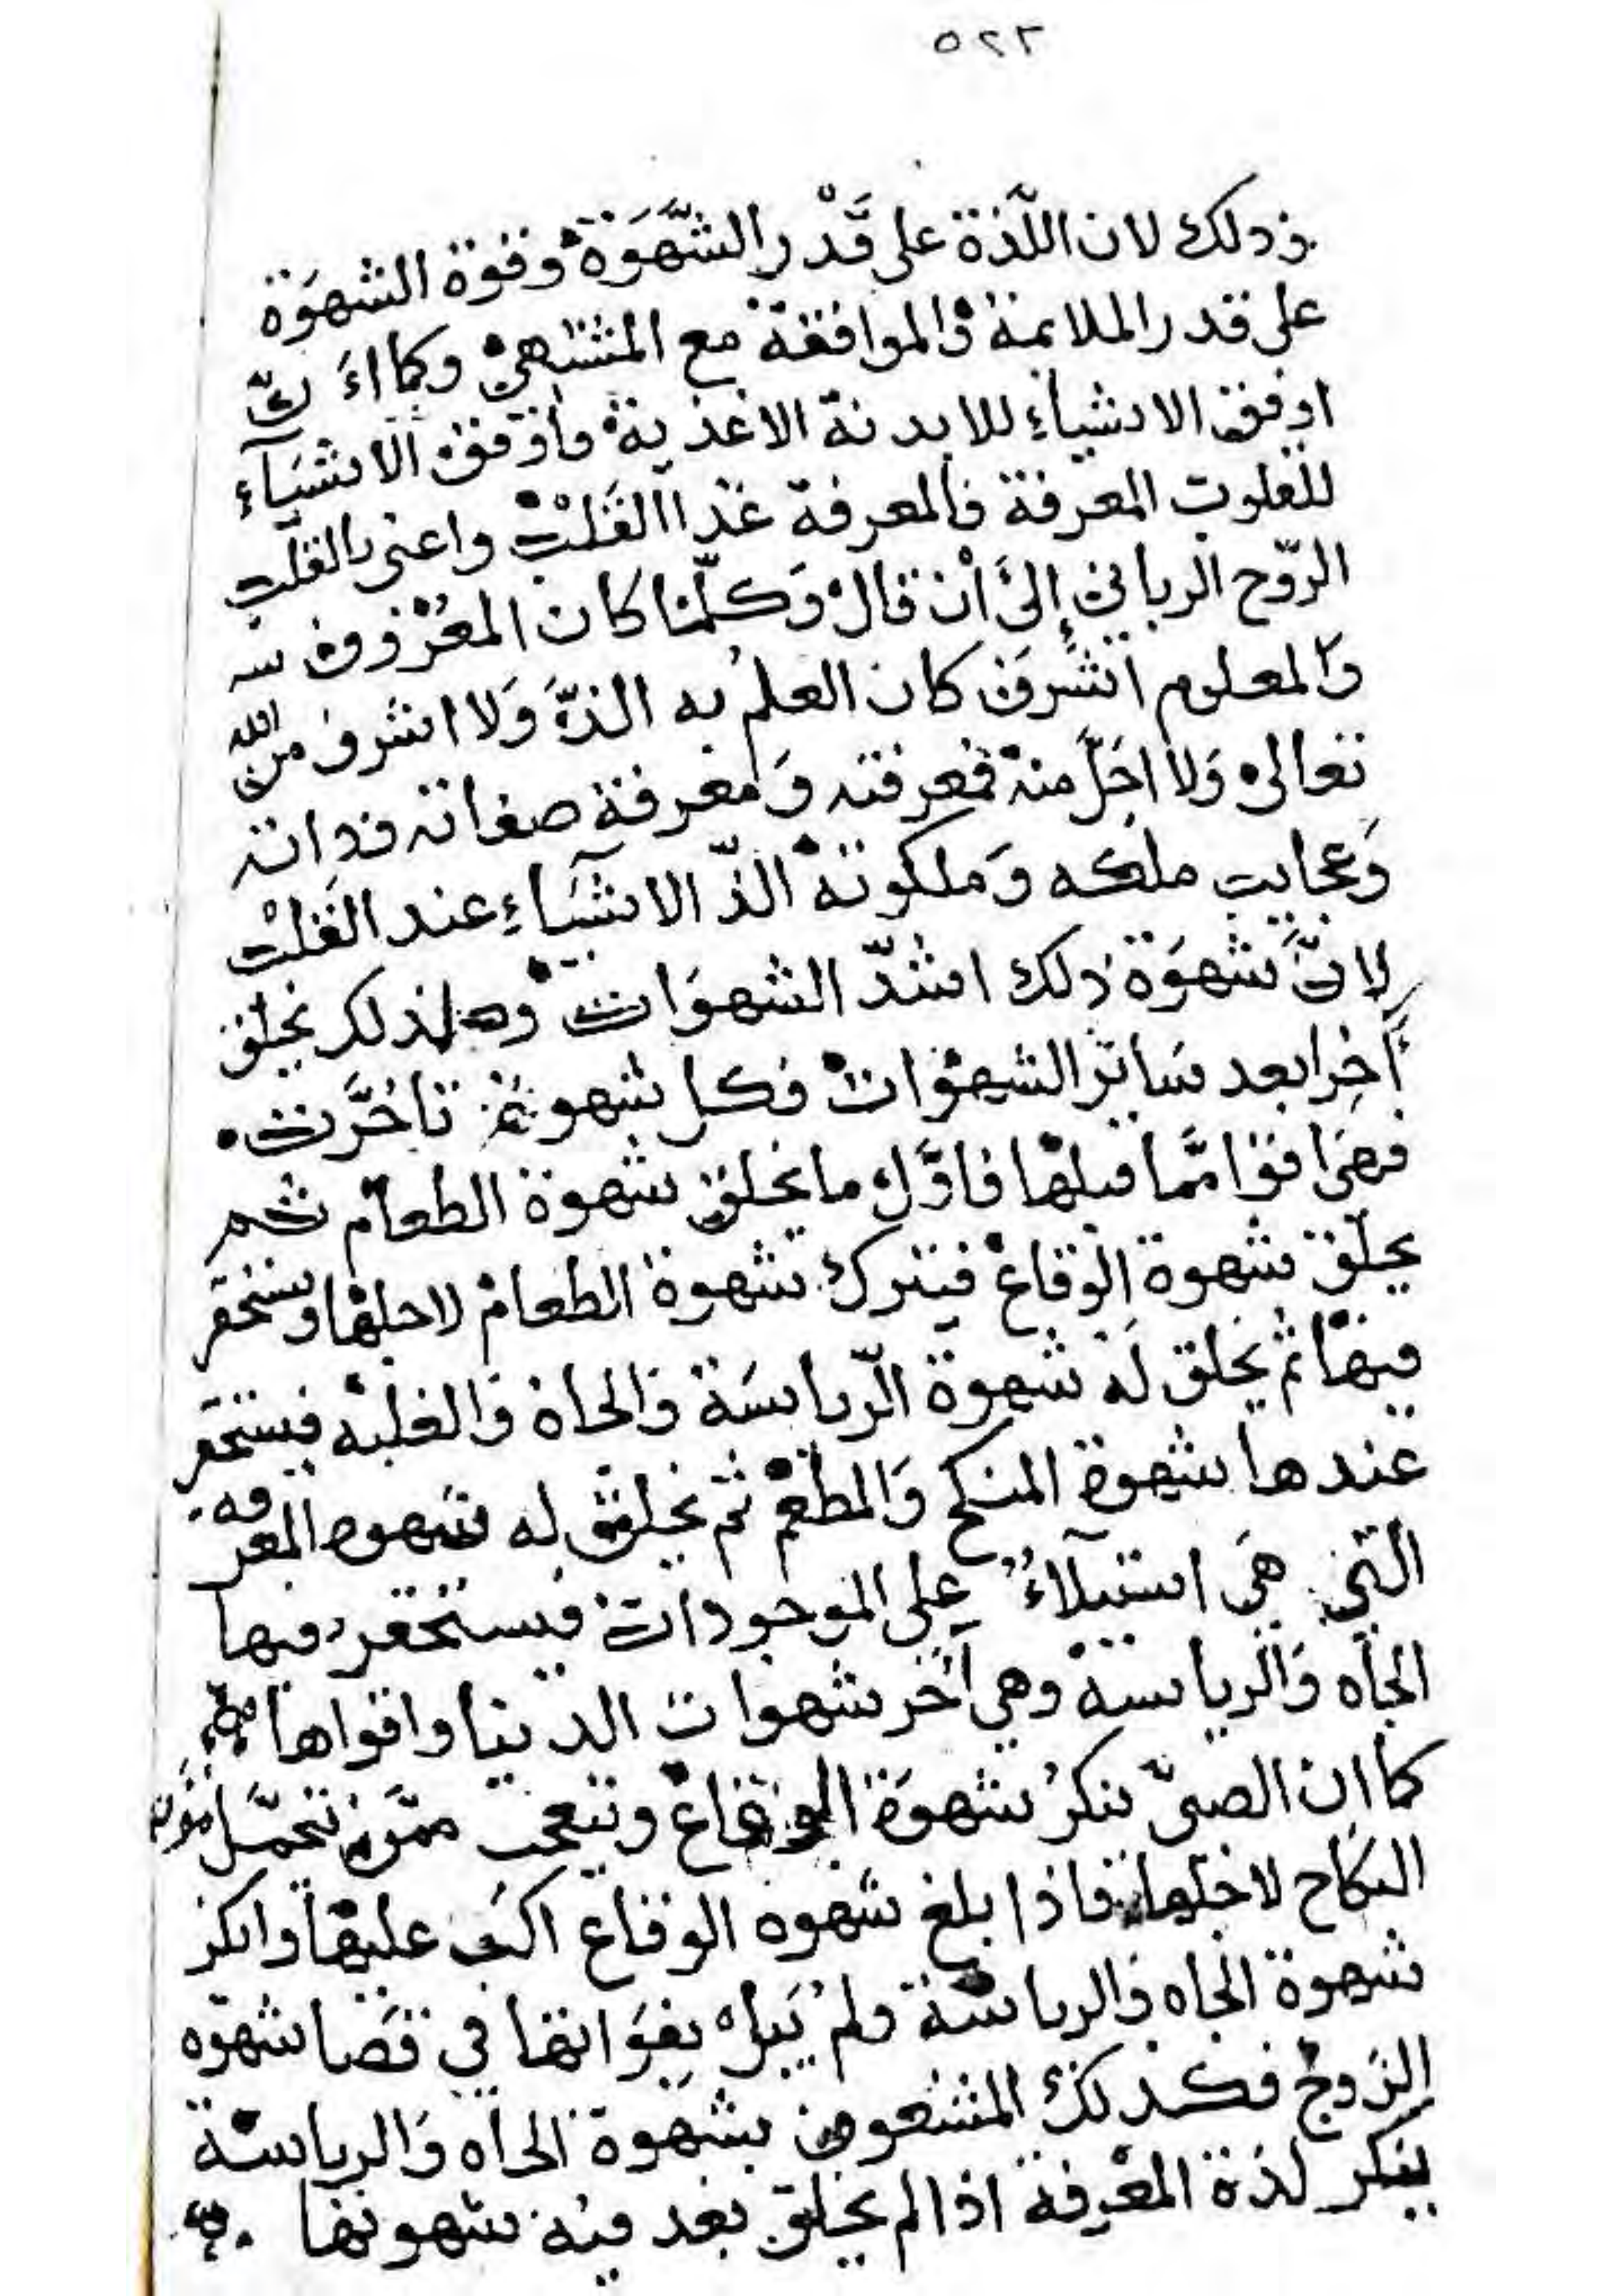 ٥٢٣
وذلك لان اللّذة على قَدْر الشَّهَوَة وقوة الشهوَة
على قدر الملايمة والموافقة مع المشتهى وكما اَنَّ
اوفق الاشياء للابدنة الاغذية واوفق الاشيَآء
للقلوب المعرفة فالمعرفة غذا القَلْب واعنى بالقلب
الرّوح الربانى إلىَ أن قال وَكلّما كان المعْروف
وَالمعلوم اَشرَف كان العلمُ به الذّ وَلا اشرف من الله
تعالى وَلا اجَلّ منه فمعرفته وَمعرفة صفاته وذاته
وَعجايب ملكه وَملكوته الذّ الاشيَآءِ عند القَلب
لانَّ شهوَة ذلك اشدّ الشهوَات ولذلك يخلق
آخِرا بعد سَاير الشهوَات وكل شهوة تاخَّرت
فهىَ اقوا ممّا قبلها فاوَّل ما يخلق شهوة الطعام ثم
يخلق شهوة الوقاع فيترك شهوة الطعام لاجلها ويستحقر
فيها ثم يخلق لَه شهوة الرّياسَة وَالجاه وَالغلبه فيستحقر
عندها شهوة المنكح وَالمطعم ثم يخلق له شهوه المعرفه
التى هىَ استيلاءُ على الموجودات فيستحقر فيها
الجاه وَالرياسة وهى آخر شهوات الدنيا واقواها
كما ان الصبىّ ينكرُ شهوَة الوقاع ويتعجب ممّن يتحمّل مؤن
النكاح لاجلها فاذا بلغ شهوه الوقاع اكب عليها وانكر
شهوة الجاه والرياسَة ولم يُبال بفوَاتها في قضا شهوه
الزوج فكذلك المشعوف بشهوة الجاه وَالرياسة
ينكر لذة المعْرفة اذا لم يخلق بعد فيه شهوتها